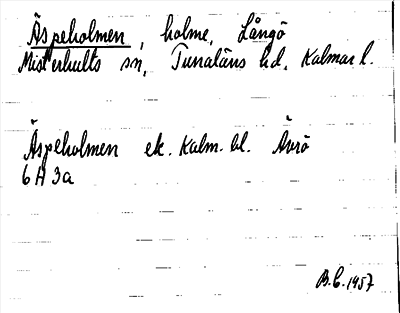 Äspeholmen, holme, Långö
Misterhults sn, Tunaläns hd, Kalmar l.
Äspeholmen ek. Kalm. bl. Ävrö
6 H 3a
B.C. 1957